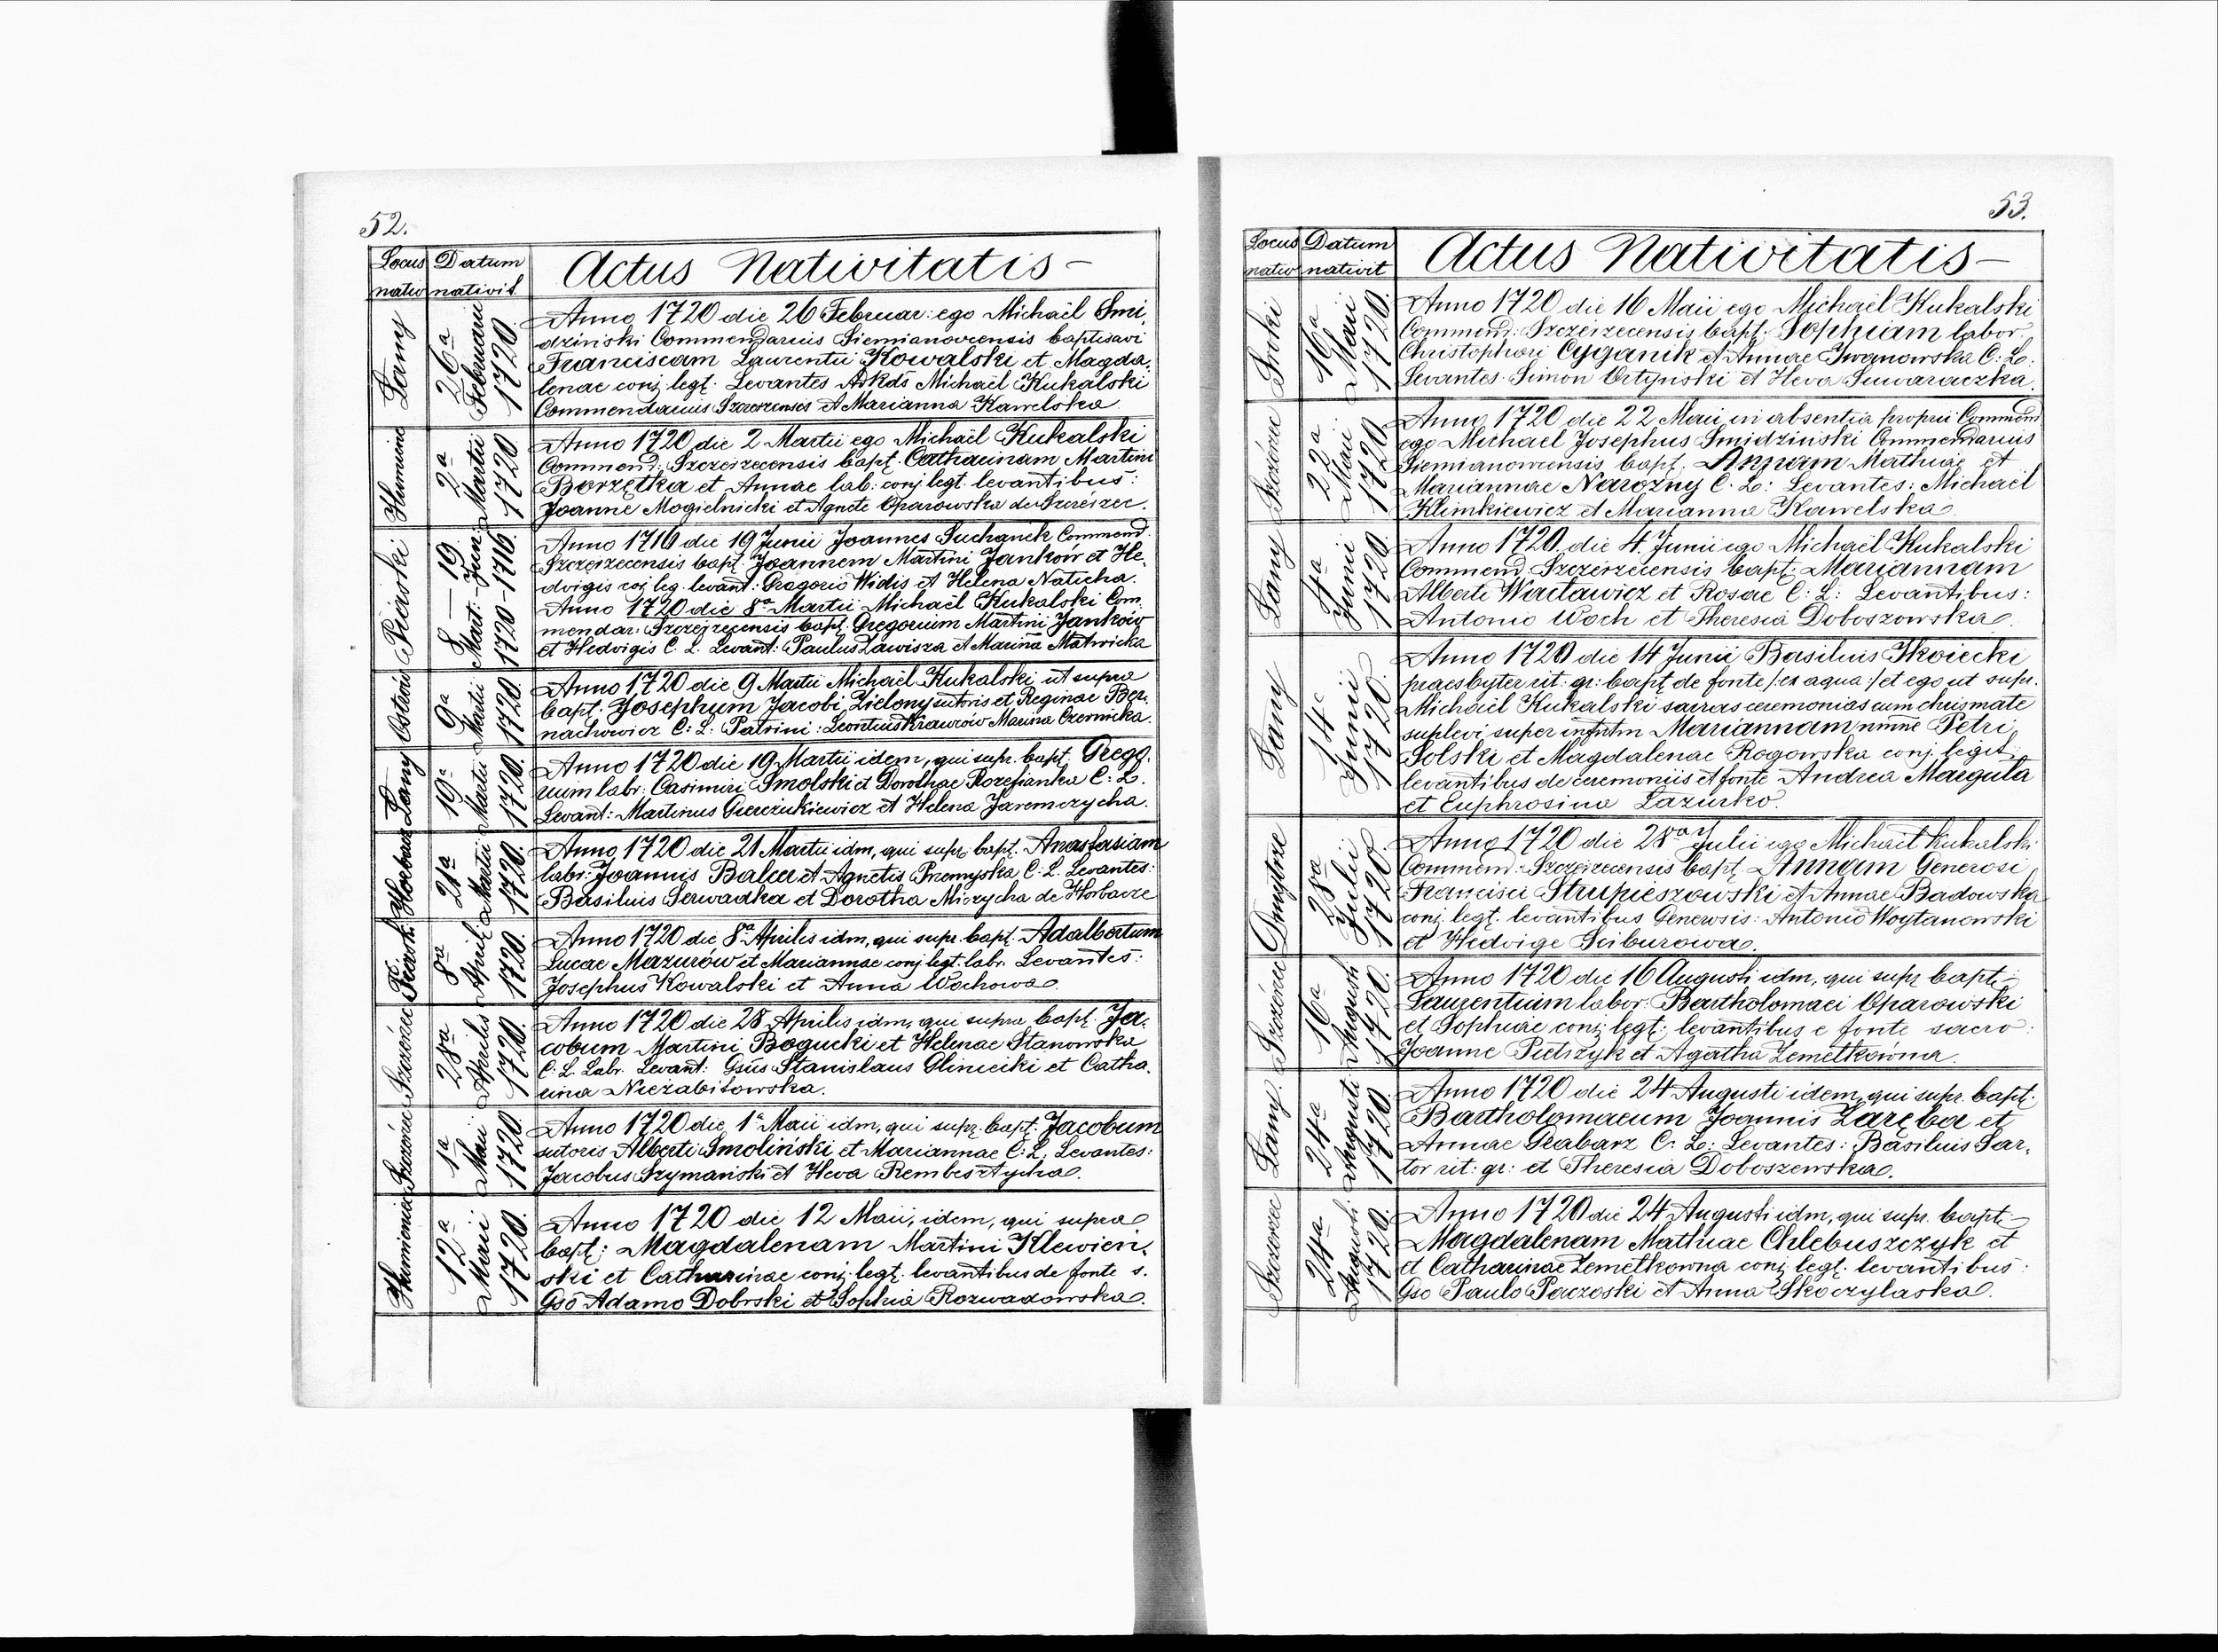 52.
Locus nativ Datum nativit. Actus Nativitatis
Łany 26a Februarii 1720
Anno 1720 die 26 Februar: ego Michaël Smi
dziński Commendarius Siemianoviensis baptisavi
Franciscam Laurentii Kowalski et Magda.
lenae conj. legt. Levantes Adkds Michaël Kukalski
Commendarius Szczerzensis et Marianna Kawelska
Humieniec 2a Martii 1720
Anno 1720 die 2 Martii ego Michaël Kukalski
Commend: Szczerzecensis bapt. Catharinam Martini
Borzętka et Annae lab: conj legt. levantibus:
Joanne Mogielnicki et Agnete Oparowska de Szczérzec.
Piaski 8 — 19 Mart: - Juni 1720-1716.
Anno 1716 die 19 Junii Joannes Suchanek Commend.
Szczerzecensis bapt. Joannem Martini Janków et He.
dvigis coj leg. levant: Gregorio Widis et Helena Naticha.
Anno 1720 die 8a Martii Michaël Kukalski Com.
mendar: Szczerzecensis bapt. Gregorium Martini Janków
et Hedvigis C. L. Levant: Paulus Zawisza et Marina Matwicka
Ostrów 9a Martii 1720
Anno 1720 die 9 Martii Michaël Kukalski ut supra
bapt: Josephum Jacobi Zielony sutoris et Reginae Ber.
nachowicz C: L: Patrini: Leontius Krawców Marina Czernicka.
Łany 19a Martii 1720.
Anno 1720 die 19 Martii idem, qui supr. bapt. Grego.
rium labr: Casimiri Smolski et Dorothae Rozefianka C: L.
Levant: Martinus Gierciukiewicz et Helena Jaremczycha.
Horbacze 21a Martii 1720.
Anno 1720 die 21 Martii idm, qui supr. bapt. Anastasiam
labr: Joannis Balca et Agnetis Przemyska C: L. Levantes:
Basilius Serwadka et Dorotha Miczycha de Horbacze
Piaski 8va Aprilis 1720.
Anno 1720 die 8a Aprilis idm, qui supr. bapt: Adalbertum
Lucae Mazurów et Mariannae conj legt. labr. Levantes:
Josephus Kowalski et Anna Wochowa.
Szczérzec 28va Aprilis 1720
Anno 1720 die 28 Aprilis idm, qui supra bapt. Ja.
cobum Martini Bogucki et Helenae Stanowska
C: L. Labr. Levant: Gsus Stanislaus Glinicki et Catha.
rina Niezabitowska.
Szczérzec 1a Maii 1720
Anno 1720 die 1a Maii idm, qui supr. bapt: Jacobum
sutoris Alberti Smoliński et Mariannae C: L: Levantes:
Jacobus Szymański et Heva Rembesztycha.
Humieniec 12a Maii 1720
Anno 1720 die 12 Maii, idem, qui supra
bapt: Magdalenam Martini Klewień.
ski et Catharinae conj. legt. levantibus de fonte s.
Gso Adamo Dobrski et Sophia Rozwadowska.
53.
Locus nativ Datum nativit Actus Nativitatis
16a Maii 1720.
Anno 1720 die 16 Maii ego Michaël Kukalski
Commend: Szczerzecensis bapt. Sophiam labor
Christophori Cyganik et Annae Iwanowska C: L.
Levantes: Simon Ortyński et Heva Suwaraczka.
Szczérzec 22a Maii 1720.
Anno 1720 die 22 Maii in absentia proprii Commend
ego Michael Josephus Smidziński Commendarius
Siemianoviensis bapt. Annam Mathiae et
Mariannae Narożny C. L: Levantes: Michaël
Klimkiewicz et Marianna Kawelska
Łany 4a Junii 1720
Anno 1720. die 4. Junii ego Michaël Kukalski
Commend. Szczerzecensis bapt: Mariannam
Alberti Wacławicz et Rosae C: L: Levantibus:
Antonio Woch et Theresia Doboszowska.
Łany 14a Junii 1720
Anno 1720 die 14 Junii Basilius Ikoiecki
praesbyter rit: gr: bapt de fonte /: ex aqua :/ et ego ut supr.
Michaël Kukalski sacras ceremonias cum chrismate
suplevi super infntm Mariannam nmne Petri
Solski et Magdalenae Rogowska conj. legit.
levantibus de ceremoniis et fonte Andrea Maguła
et Euphrosina Łazurko.
Dmytrze 28va Julii 1720
Anno 1720 die 28va Julii ego Michaël Kukalski
Commend: Szczerzecensis bapt Annam Generosi
Francisci Strupieszowski et Annae Badowska
conj. legt. levantibus Generosis: Antonio Woytanowski
et Hedvige Sciburowa.
Szczérzec 16a Augusti 1720.
Anno 1720 die 16 Augusti idm, qui supr bapt.
Laurentium labor: Bartholomaei Oparowski
et Sophiae conj: legt: levantibus e fonte sacro:
Joanne Pietrzyk et Agatha Zemetkówna.
Łany. 24a Augusti 1720.
Anno 1720 die 24 Augusti idem, qui supr. bapt.
Bartholomaeum Joannis Zaręba et
Annae Grabarz C: L: Levantes: Basilius Sar.
tor rit: gr: et Theresia Doboszewska.
Szczerzec 24a Augusti 1720.
Anno 1720 die 24 Augusti idm, qui supr. bapt.
Magdalenam Mathiae Chlebuszczyk et
et Catharinae Zemetkowna conj legt. levantibus:
Gso Paulo Paczoski et Anna Skoczylaska.